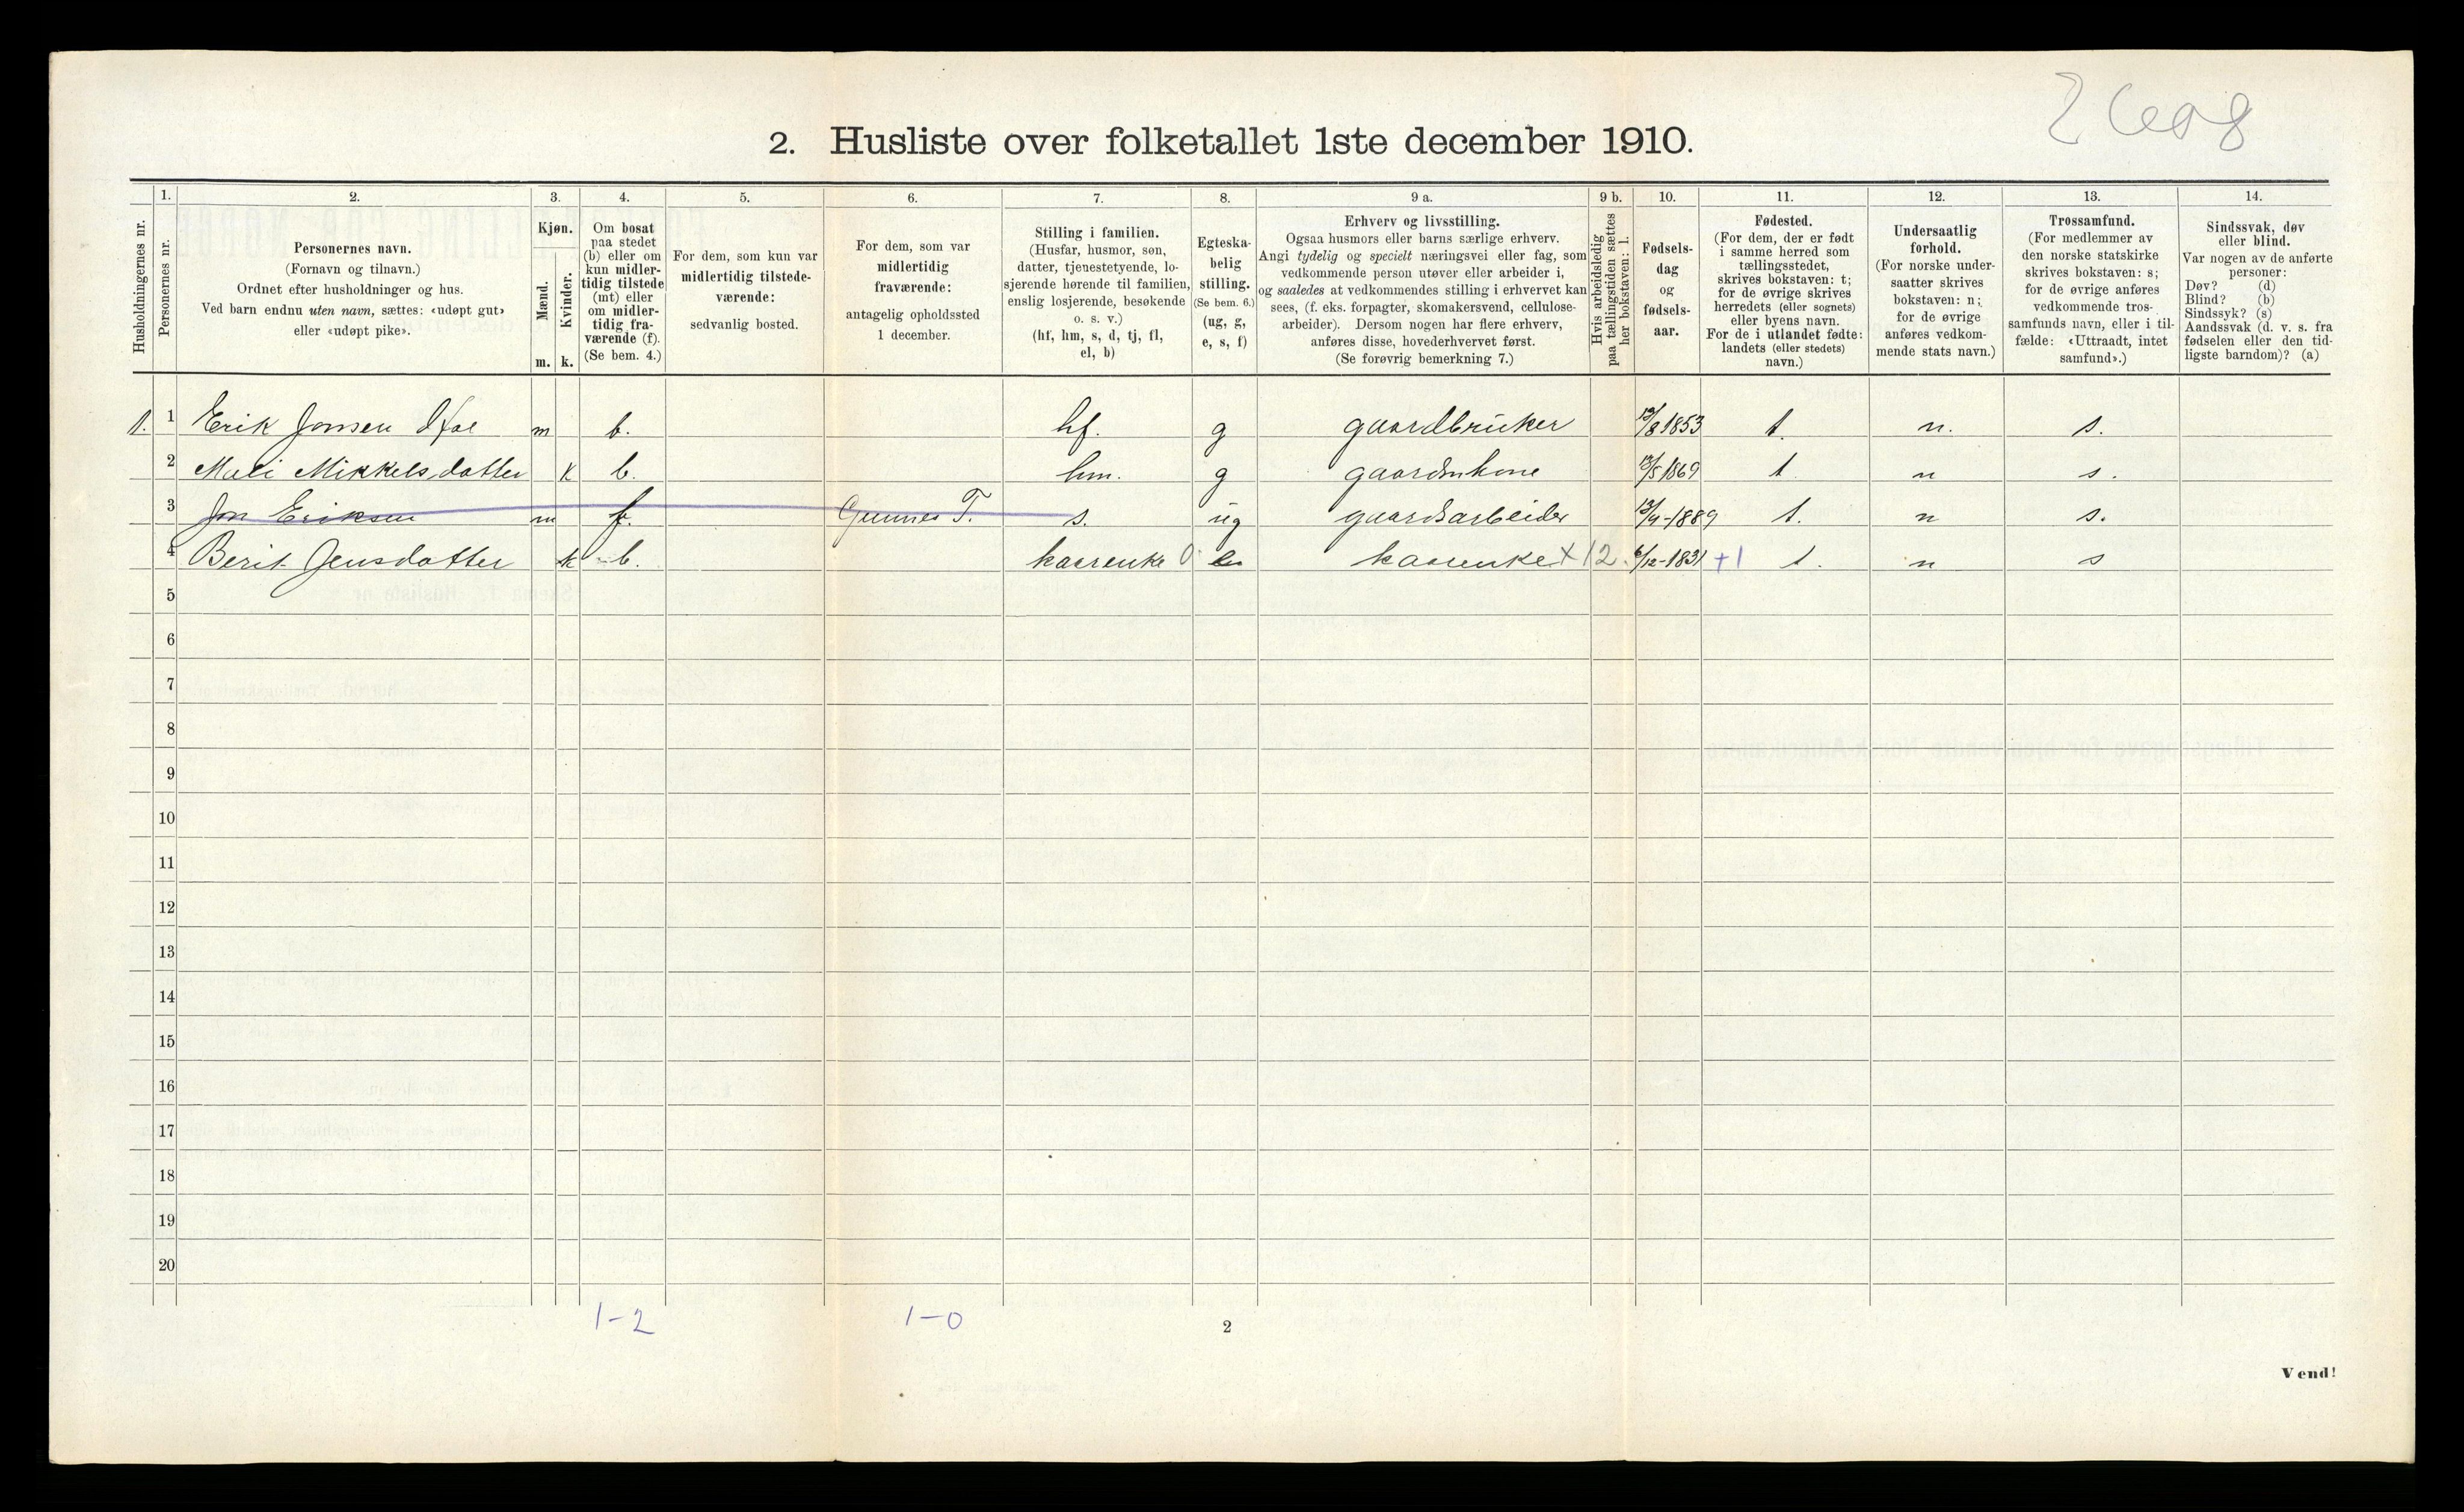 2. Husliste over folketallet 1ste december 1910.
Husholdningernes nr.
1.
Personernes nr.
2.
Personernes navn.
(Fornavn og tilnavn.)
Ordnet efter husholdninger og hus.
Ved barn endnu uten navn, sættes: «udøpt gut»
eller «udøpt pike».
3.
Kjøn.
Mænd.
m.
Kvinder.
k.
4.
Om bosat
paa stedet
(b) eller om
kun midler-
tidig tilstede
(mt) eller
om midler-
tidig fra-
værende (f).
(Se bem. 4.)
5.
For dem, som kun var
midlertidig tilstede-
værende:
sedvanlig bosted.
6.
For dem, som var
midlertidig
fraværende:
antagelig opholdssted
1 december.
7.
Stilling i familien.
(Husfar, husmor, søn,
datter, tjenestetyende, lo-
sjerende hørende til familien,
enslig losjerende, besøkende
o. s. v.)
(hf, hm, s, d, tj, fl,
el, b)
8.
Egteska-
belig
stilling.
(Se bem. 6.)
(ug, g,
e, s, f)
9 a.
Erhverv og livsstilling.
Ogsaa husmors eller barns særlige erhverv.
Angi tydelig og specielt næringsvei eller fag, som
vedkommende person utøver eller arbeider i,
og saaledes at vedkommendes stilling i erhvervet kan
sees, (f. eks. forpagter, skomakersvend, cellulose-
arbeider). Dersom nogen har flere erhverv,
anføres disse, hovederhvervet først.
(Se forøvrig bemerkning 7.)
9 b.
Hvis arbeidsledig
paa tællingstiden sættes
her bokstaven: l.
10.
Fødsels-
dag
og
fødsels-
aar.
11.
Fødested.
(For dem, der er født
i samme herred som
tællingsstedet,
skrives bokstaven: t;
for de øvrige skrives
herredets (eller sognets)
eller byens navn.
For de i utlandet fødte:
landets (eller stedets)
navn.)
12.
Undersaatlig
forhold.
(For norske under-
saatter skrives
bokstaven: n;
for de øvrige
anføres vedkom-
mende stats navn.)
13.
Trossamfund.
(For medlemmer av
den norske statskirke
skrives bokstaven: s;
for de øvrige anføres
vedkommende tros-
samfunds navn, eller i til-
fælde: «Uttraadt, intet
samfund».)
14.
Sindssvak, døv
eller blind.
Var nogen av de anførte
personer:
Døv? (d)
Blind? (b)
Sindssyk? (s)
Aandssvak (d. v. s. fra
fødselen eller den tid-
ligste barndom)? (a)
1. 1 Erik Jonsen m b. hf. g gaardbruker 13/8 1853 t. n. s.
2 Mali Mikkelsdatter k b. hm. g gaardmkone 13/5 1869 t. n s.
3 Jon Eriksen m f. Gunnes T. s. ug gaardsarbeider 13/9-1889 t. n s.
4 Berit Jensdatter k b. kaarenke 0 kaarenke X 12. 6/12-1831 +1 t. n s
5
6
7
8
9
10
11
12
13
14
15
16
17
18
19
20
1-2 1-0
2
Vend!